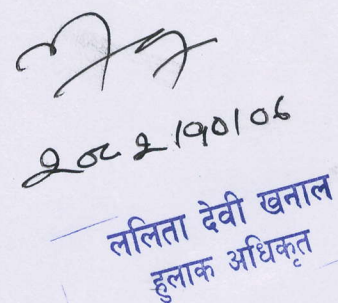 २०८२।१०।०७
ललिता देवी खनाल
हुलाक अधिकृत